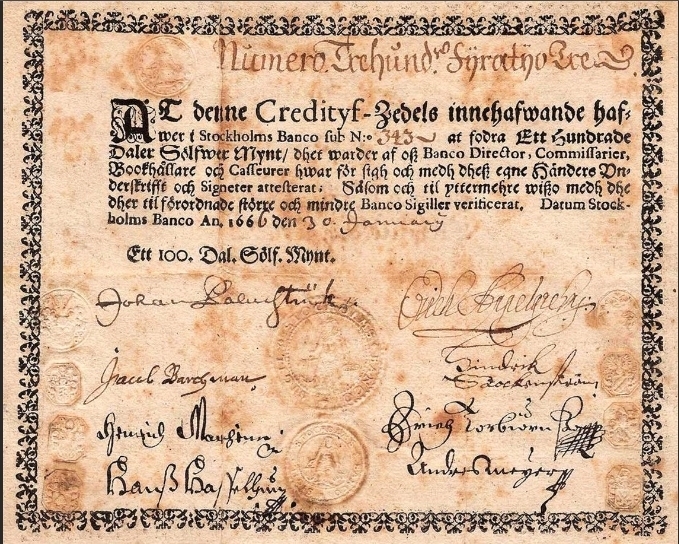 Numero. Trehundro Fyratyo Tre
AT denne Credityf-Zedels innehafwande haf-
wer i Stockholms Banco sub N:o 343 at fodra Ett Hundrade
Daler Sölfwer Mynt/ dhet warder af oß Banco Director, Commissarier,
Bookhållare och Casseurer hwar för sigh och medh dheß egne Händers Vn-
derskrifft och Signeter attesterat; Såsom och til yttermehre wißo medh dhe
dher til förordnade större och mindre Banco Sigiller verificerat. Datum Stock-
holms Banco An. 1666 den 30. January
Ett 100. Dal. Sölf. Mynt.
Johan Palmstruk
Jacob Barchman
Hindrik
Hans